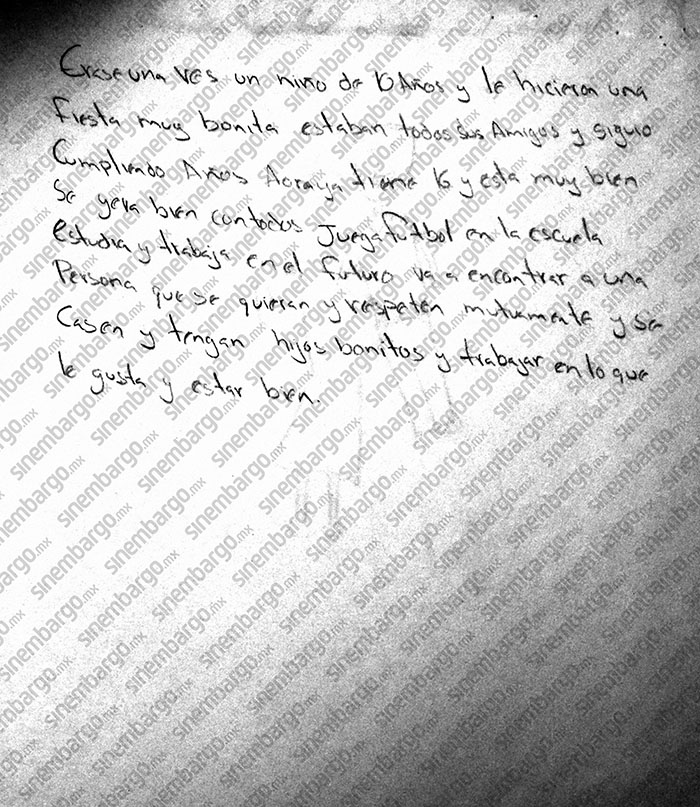 Erase una ves un niño de 10 Años y le hicieron una
fiesta muy bonita estaban todos sus Amigos y siguio
Cumpliendo Años Aoraya tiene 16 y esta muy bien
Se yeva bien con todos Juega futbol en la escuela
estudia y trabaja en el futuro va a encontrar a una
Persona que se quieran y respeten mutuamente y se
Casen y tengan hijos bonitos y trabajar en lo que
le gusta y estar bien.
sinembargo.mx